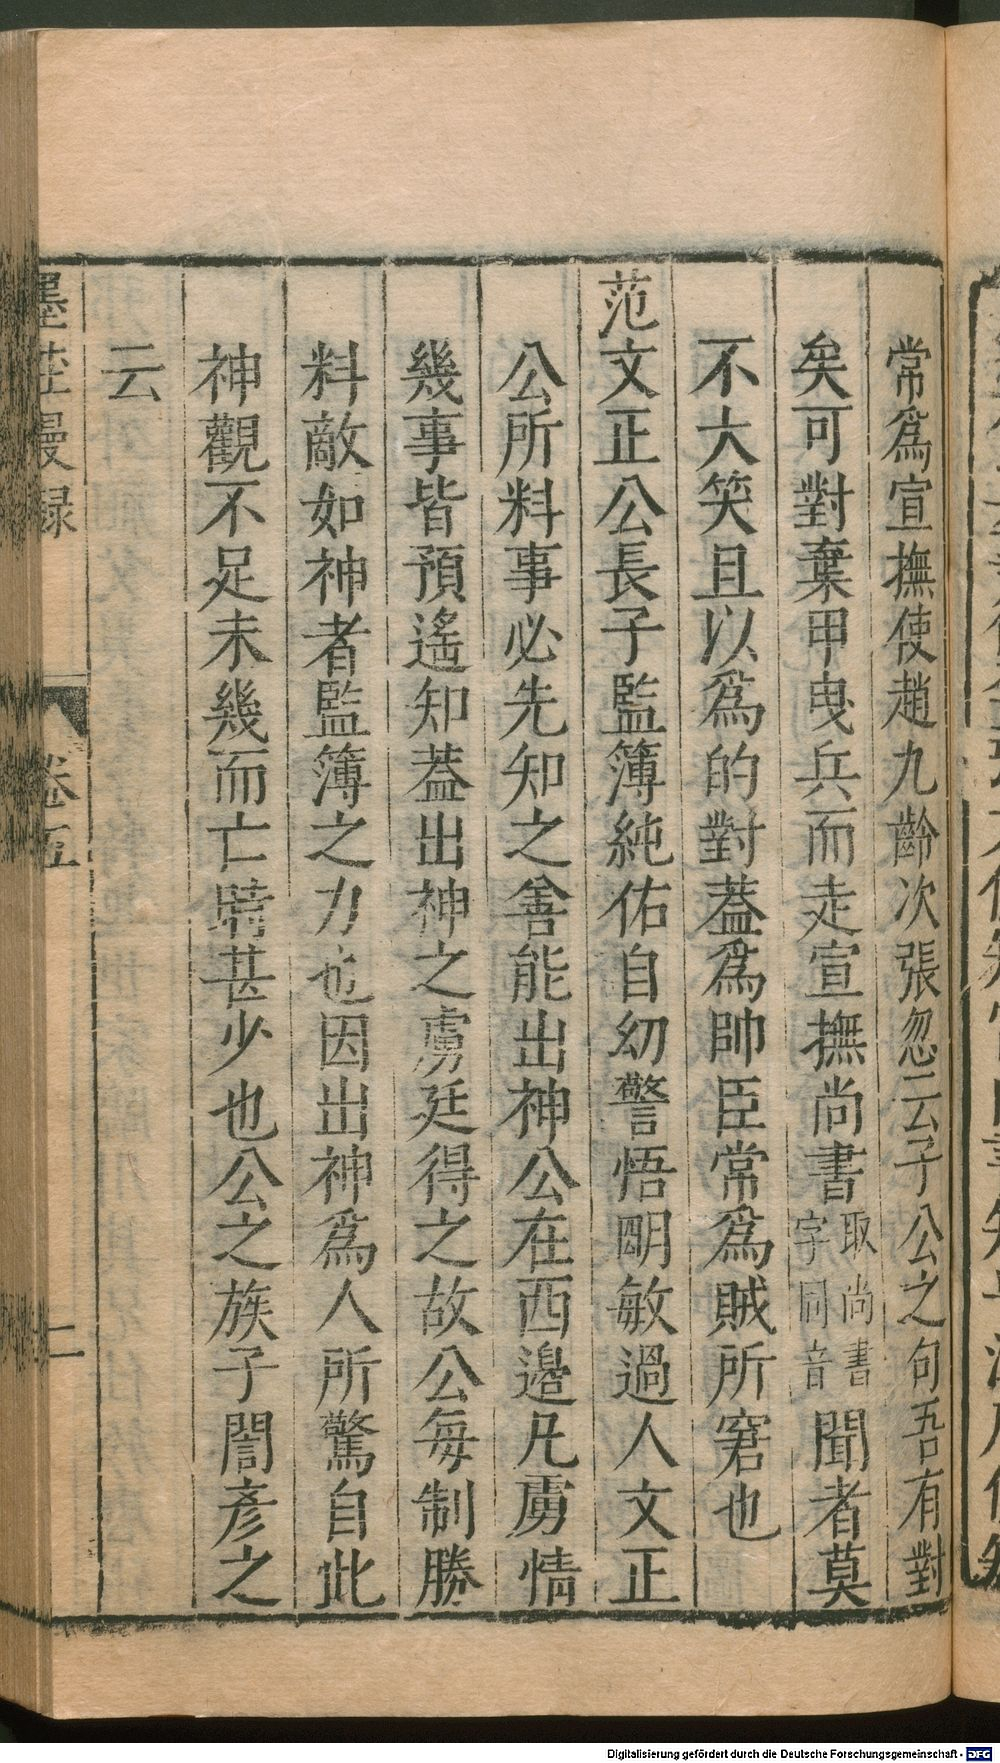 常爲宣撫使趙九齡次張忽云子公之句吾有對
矣可對棄甲曳兵而走宣撫尚書取尚書字同音聞者莫
不大笑且以爲的對葢爲帥臣常爲賊所窘也
范文正公長子監簿純佑自幼警悟明敏過人文正
公所料事必先知之善能出神公在西邉凡虜情
幾事皆預遙知葢出神之虜廷得之故公每制勝
料敵如神者監簿之力也因出神爲人所驚自此
神觀不足未幾而亡時甚少也公之族子誾彥之
云
墨莊漫録
卷五
二
Digitalisierung gefördert durch die Deutsche Forschungsgemeinschaft - DFG